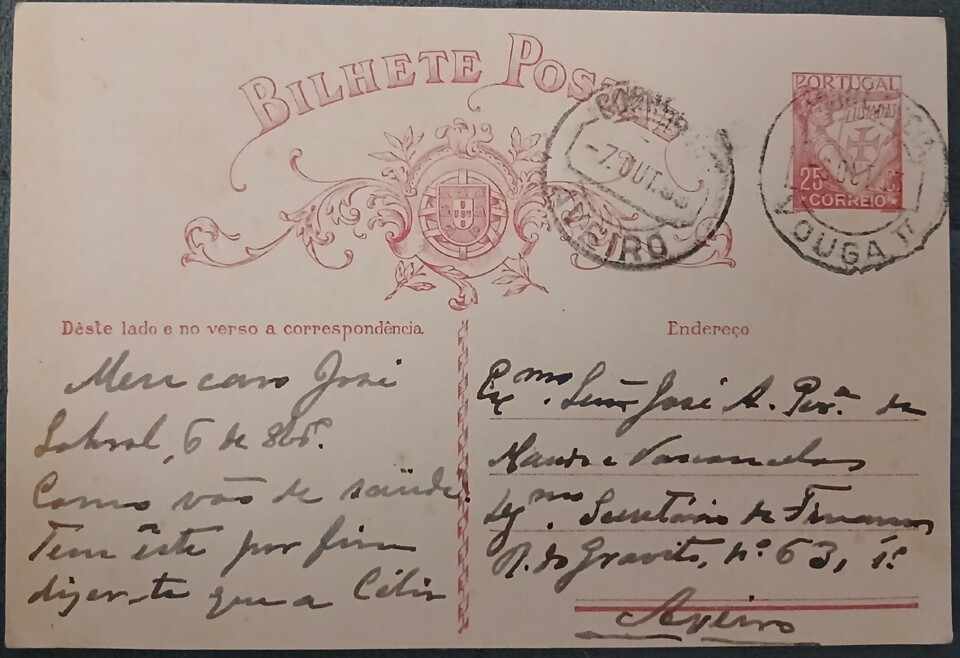 BILHETE POSTAL
PORTUGAL
LUSIADAS
25 C.
CORREIO
-7 OUT.
OUT
VOUGA
Dêste lado e no verso a correspondência
Endereço
Meu caro José
Sobral, 6 de
Como vão de saüde?
Tem êste por fim
dizer-te que a Célia
Exmo. Senr José A. Perª. da
e Vasconcelos
Dgmo. Secretário de Finanças
R. do Gravito, nº 63, 1º
Aveiro